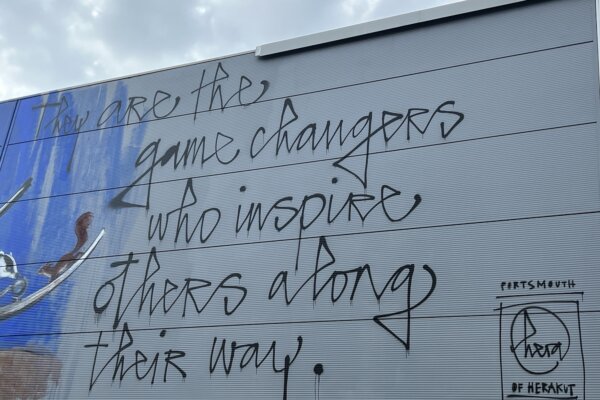 They are the
game changers
who inspire
others along
their way.
PORTSMOUTH
hera
OF HERAKUT